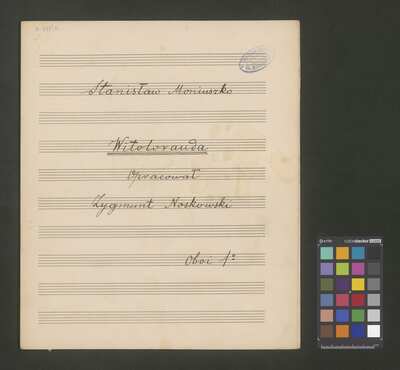 Stanisław Moniuszko
Witolorauda
Opracował
Zygmunt Noskowski
Oboi 1º